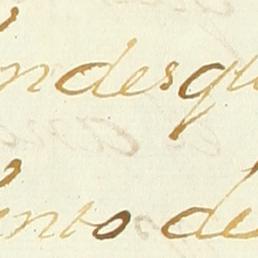 ndesqu
ento de